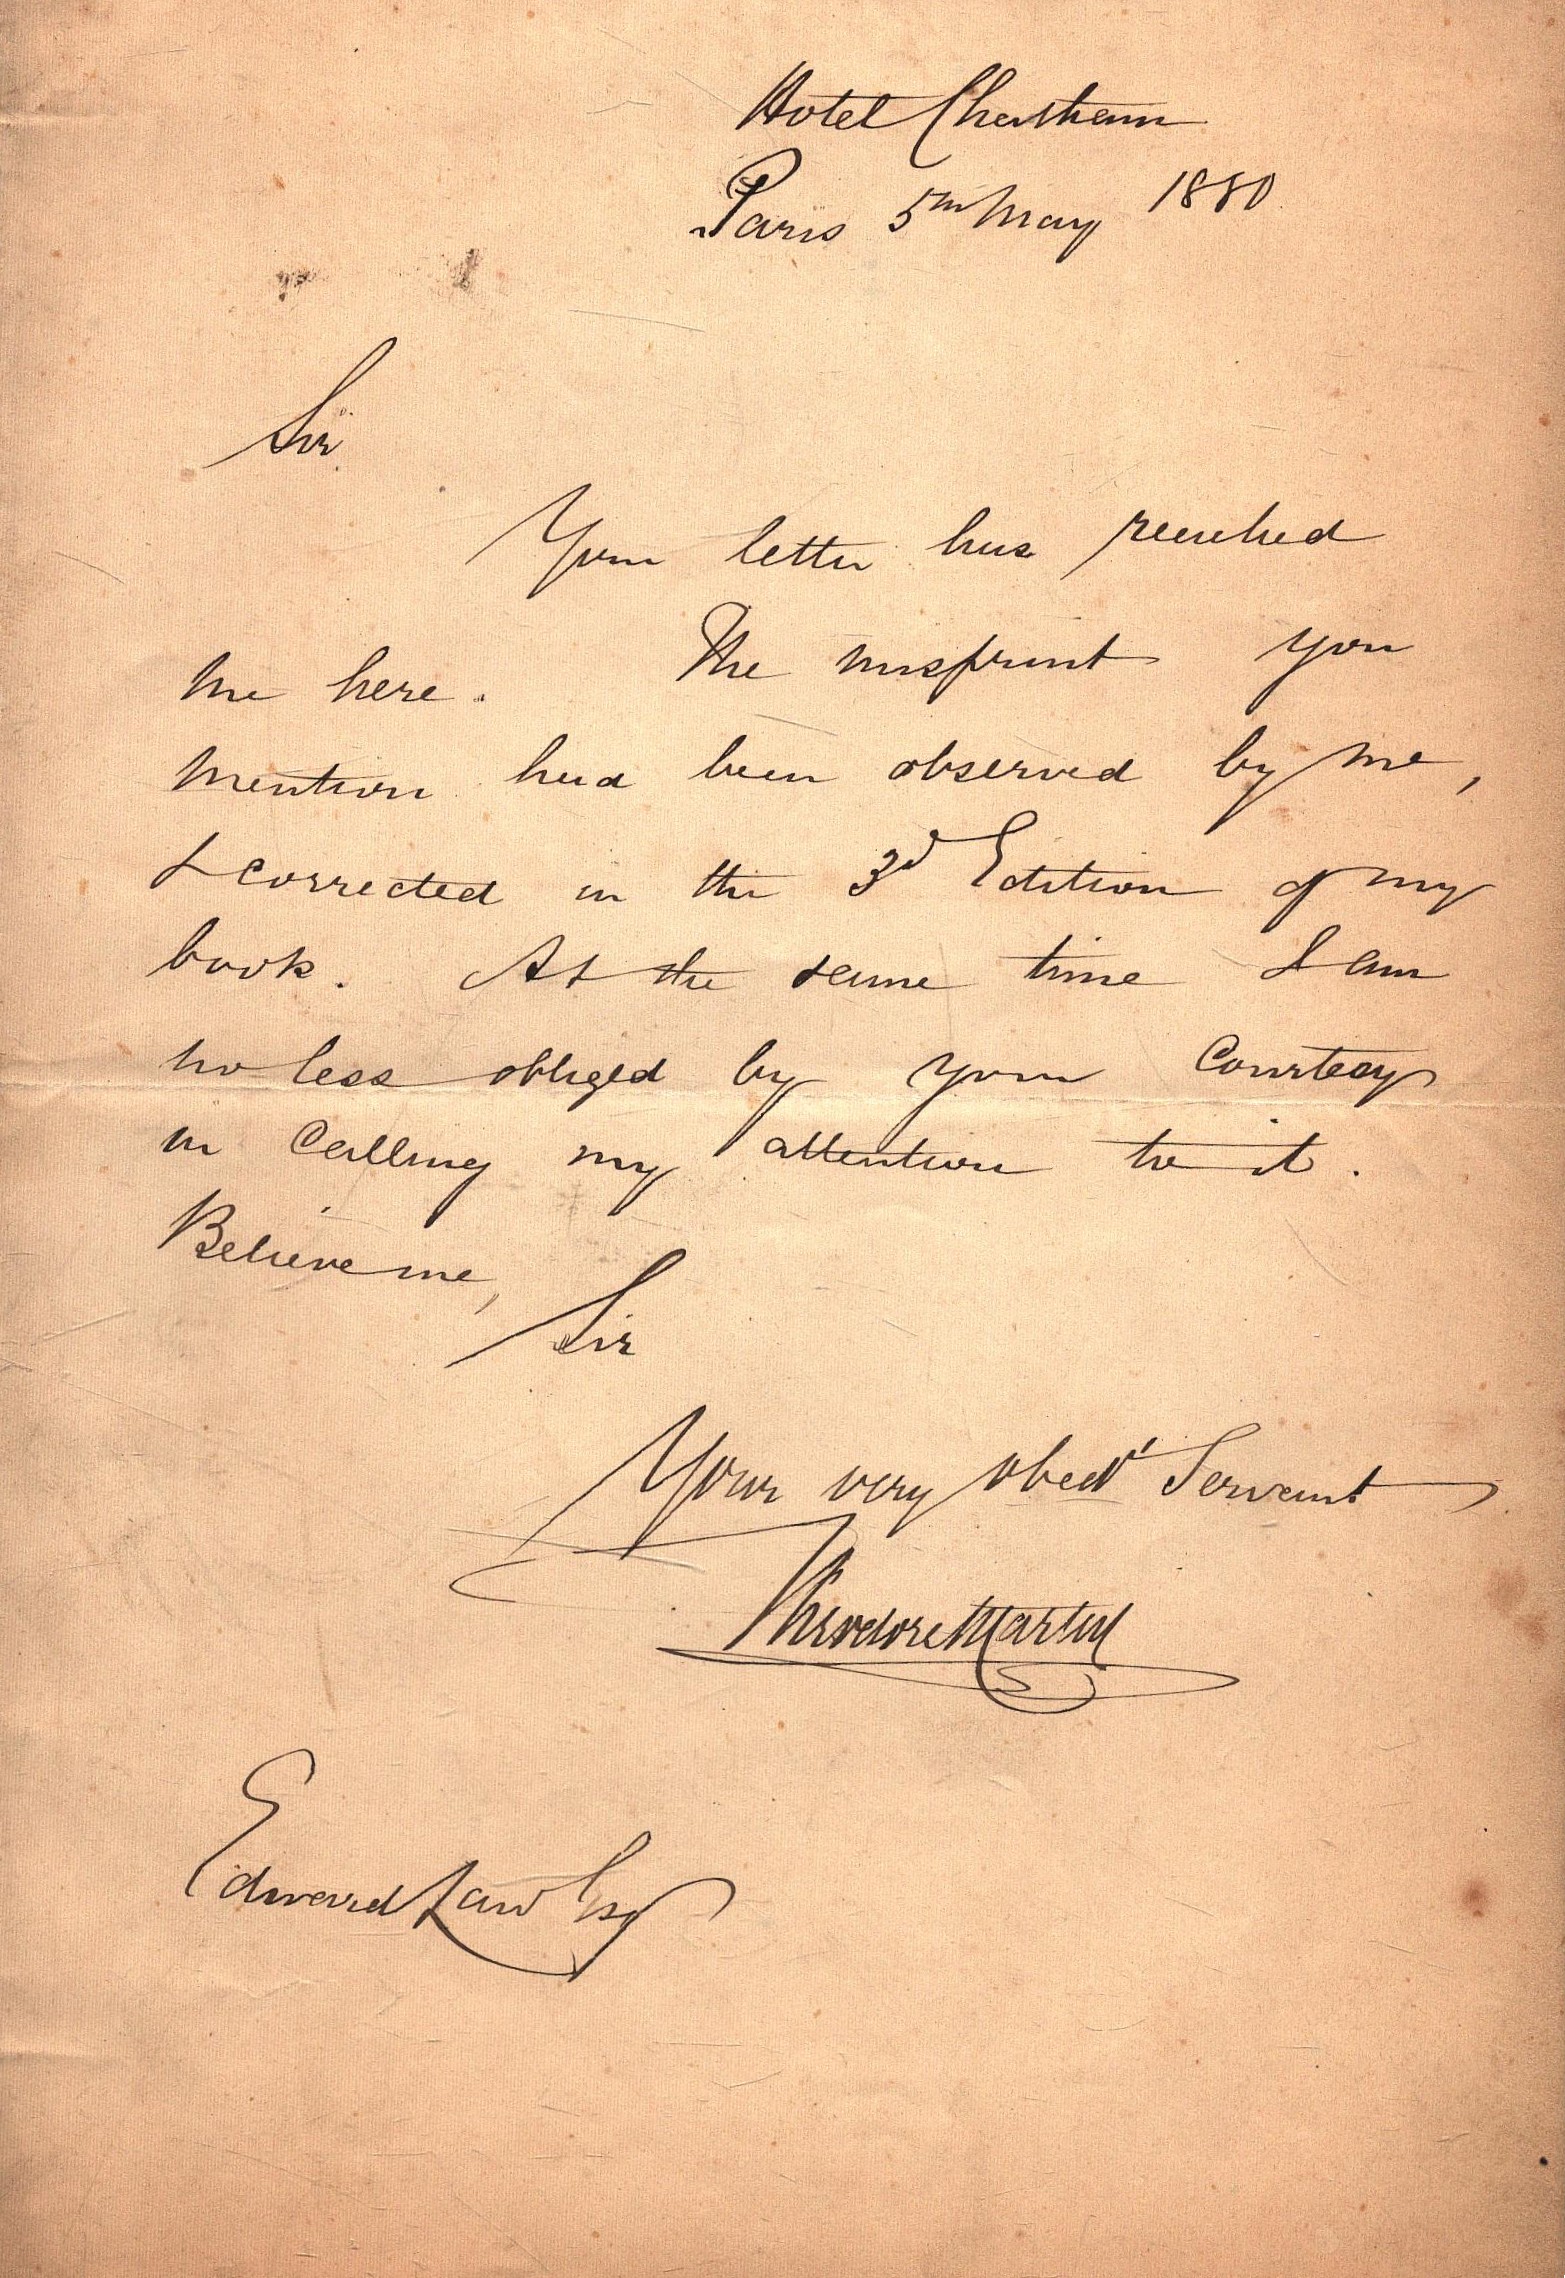 Hotel Chatham
Paris 5th May 1880
Sir
Your letter has reached
me here. The misprint you
mention had been observed by me,
& corrected in the 3d Edition of my
book. At the same time I am
no less obliged by your courtesy
in calling my attention to it.
Believe me,
Sir
Your very obedt Servant
Theodore Martin
Edward Law Esq